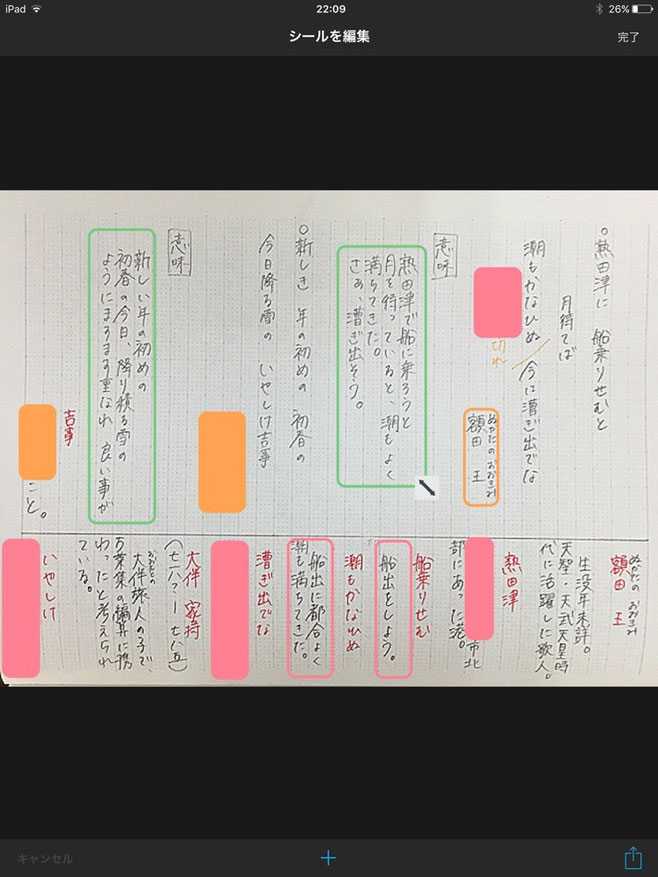 iPad
22:09
26%
シールを編集
完了
○熱田津に 船乗りせむと
月待てば
潮もかなひぬ/今は漕ぎ出でな
切れ
ぬかたの おおきみ
額田 王
意味
熱田津で船に乗ろうと
月を待っていると、潮もよく
満ちてきた。
さあ、漕ぎ出そう。
○新しき 年の初めの 初春の
今日降る雪の いやしけ吉事
意味
新しい年の初めの
初春の今日、降り積る雪の
ようにますます重なれ 良い事が
吉事
こと。
ぬかたの おおきみ
額田 王
生没年未詳。
天智・天武天皇時
代に活躍した歌人。
熱田津
市北
部にあった港。
船乗りせむ
船出をしよう。
潮もかなひぬ
船出に都合よく
潮も満ちてきた。
漕ぎ出でな
大伴 家持
(七一八?ー七八五)
おおとも
大伴旅人の子で、
万葉集の編集に携
わったと考えられ
ている。
いやしけ
キャンセル